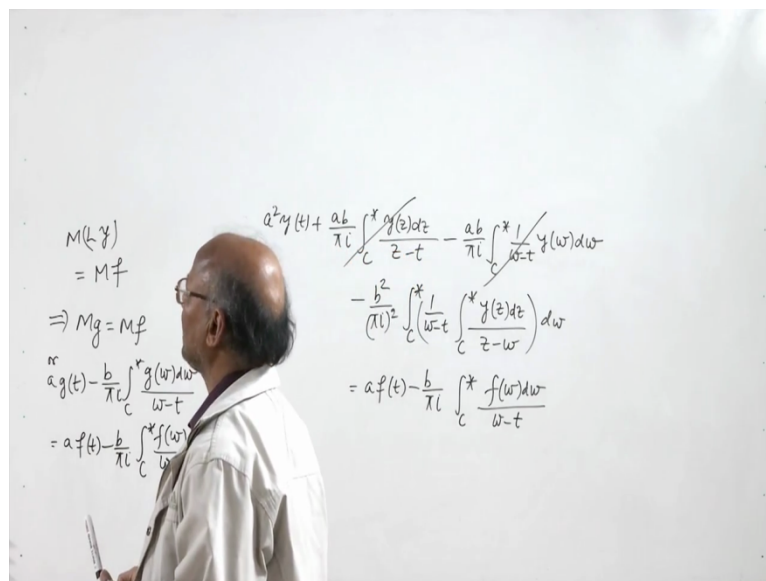 M(Ly)
= Mf
⇒ Mg = Mf
or
a g(t) - b/πi ∫_C^* g(w)dw/(w-t)
= a f(t) - b/πi ∫_C^* f(w)
a²y(t) + ab/πi ∫_C^* y(z)dz/(z-t) - ab/πi ∫_C^* 1/(w-t) y(w)dw
- b²/(πi)² ∫_C^* (1/(w-t) ∫_C^* y(z)dz/(z-w)) dw
= a f(t) - b/πi ∫_C^* f(w)dw/(w-t)